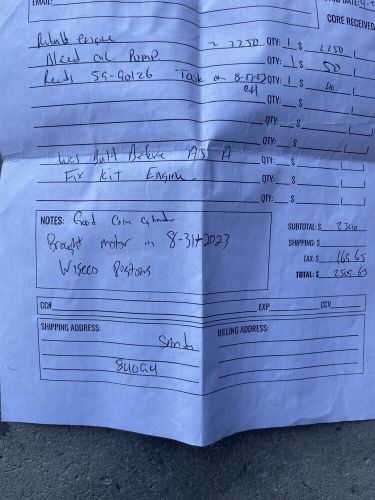 EMAIL:
CORE RECEIVED
Rebuilt engine ~ 2250 QTY: 1 $ 2250
Bleed oil Pump QTY: 1 $ 50
Reeds 59-90126 Took on 8-17-23 QTY: 1 $ 40
QTY: $
QTY: $
QTY: $
Was Built Before AS A QTY: $
Fix Kit Engine QTY: $
QTY: $
NOTES: Good Core cylinder
Brought motor in 8-31-2023
Wiseco Pistons
SUBTOTAL: $ 2340
SHIPPING: $
TAX: $ 169.65
TOTAL: $ 2509.65
CC# EXP CCV
SHIPPING ADDRESS:
BILLING ADDRESS:
84094